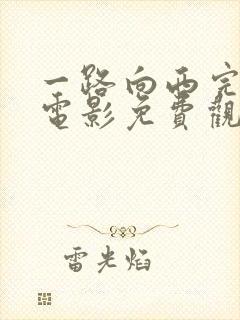 一路向西完
電影免費觀
雷光焰